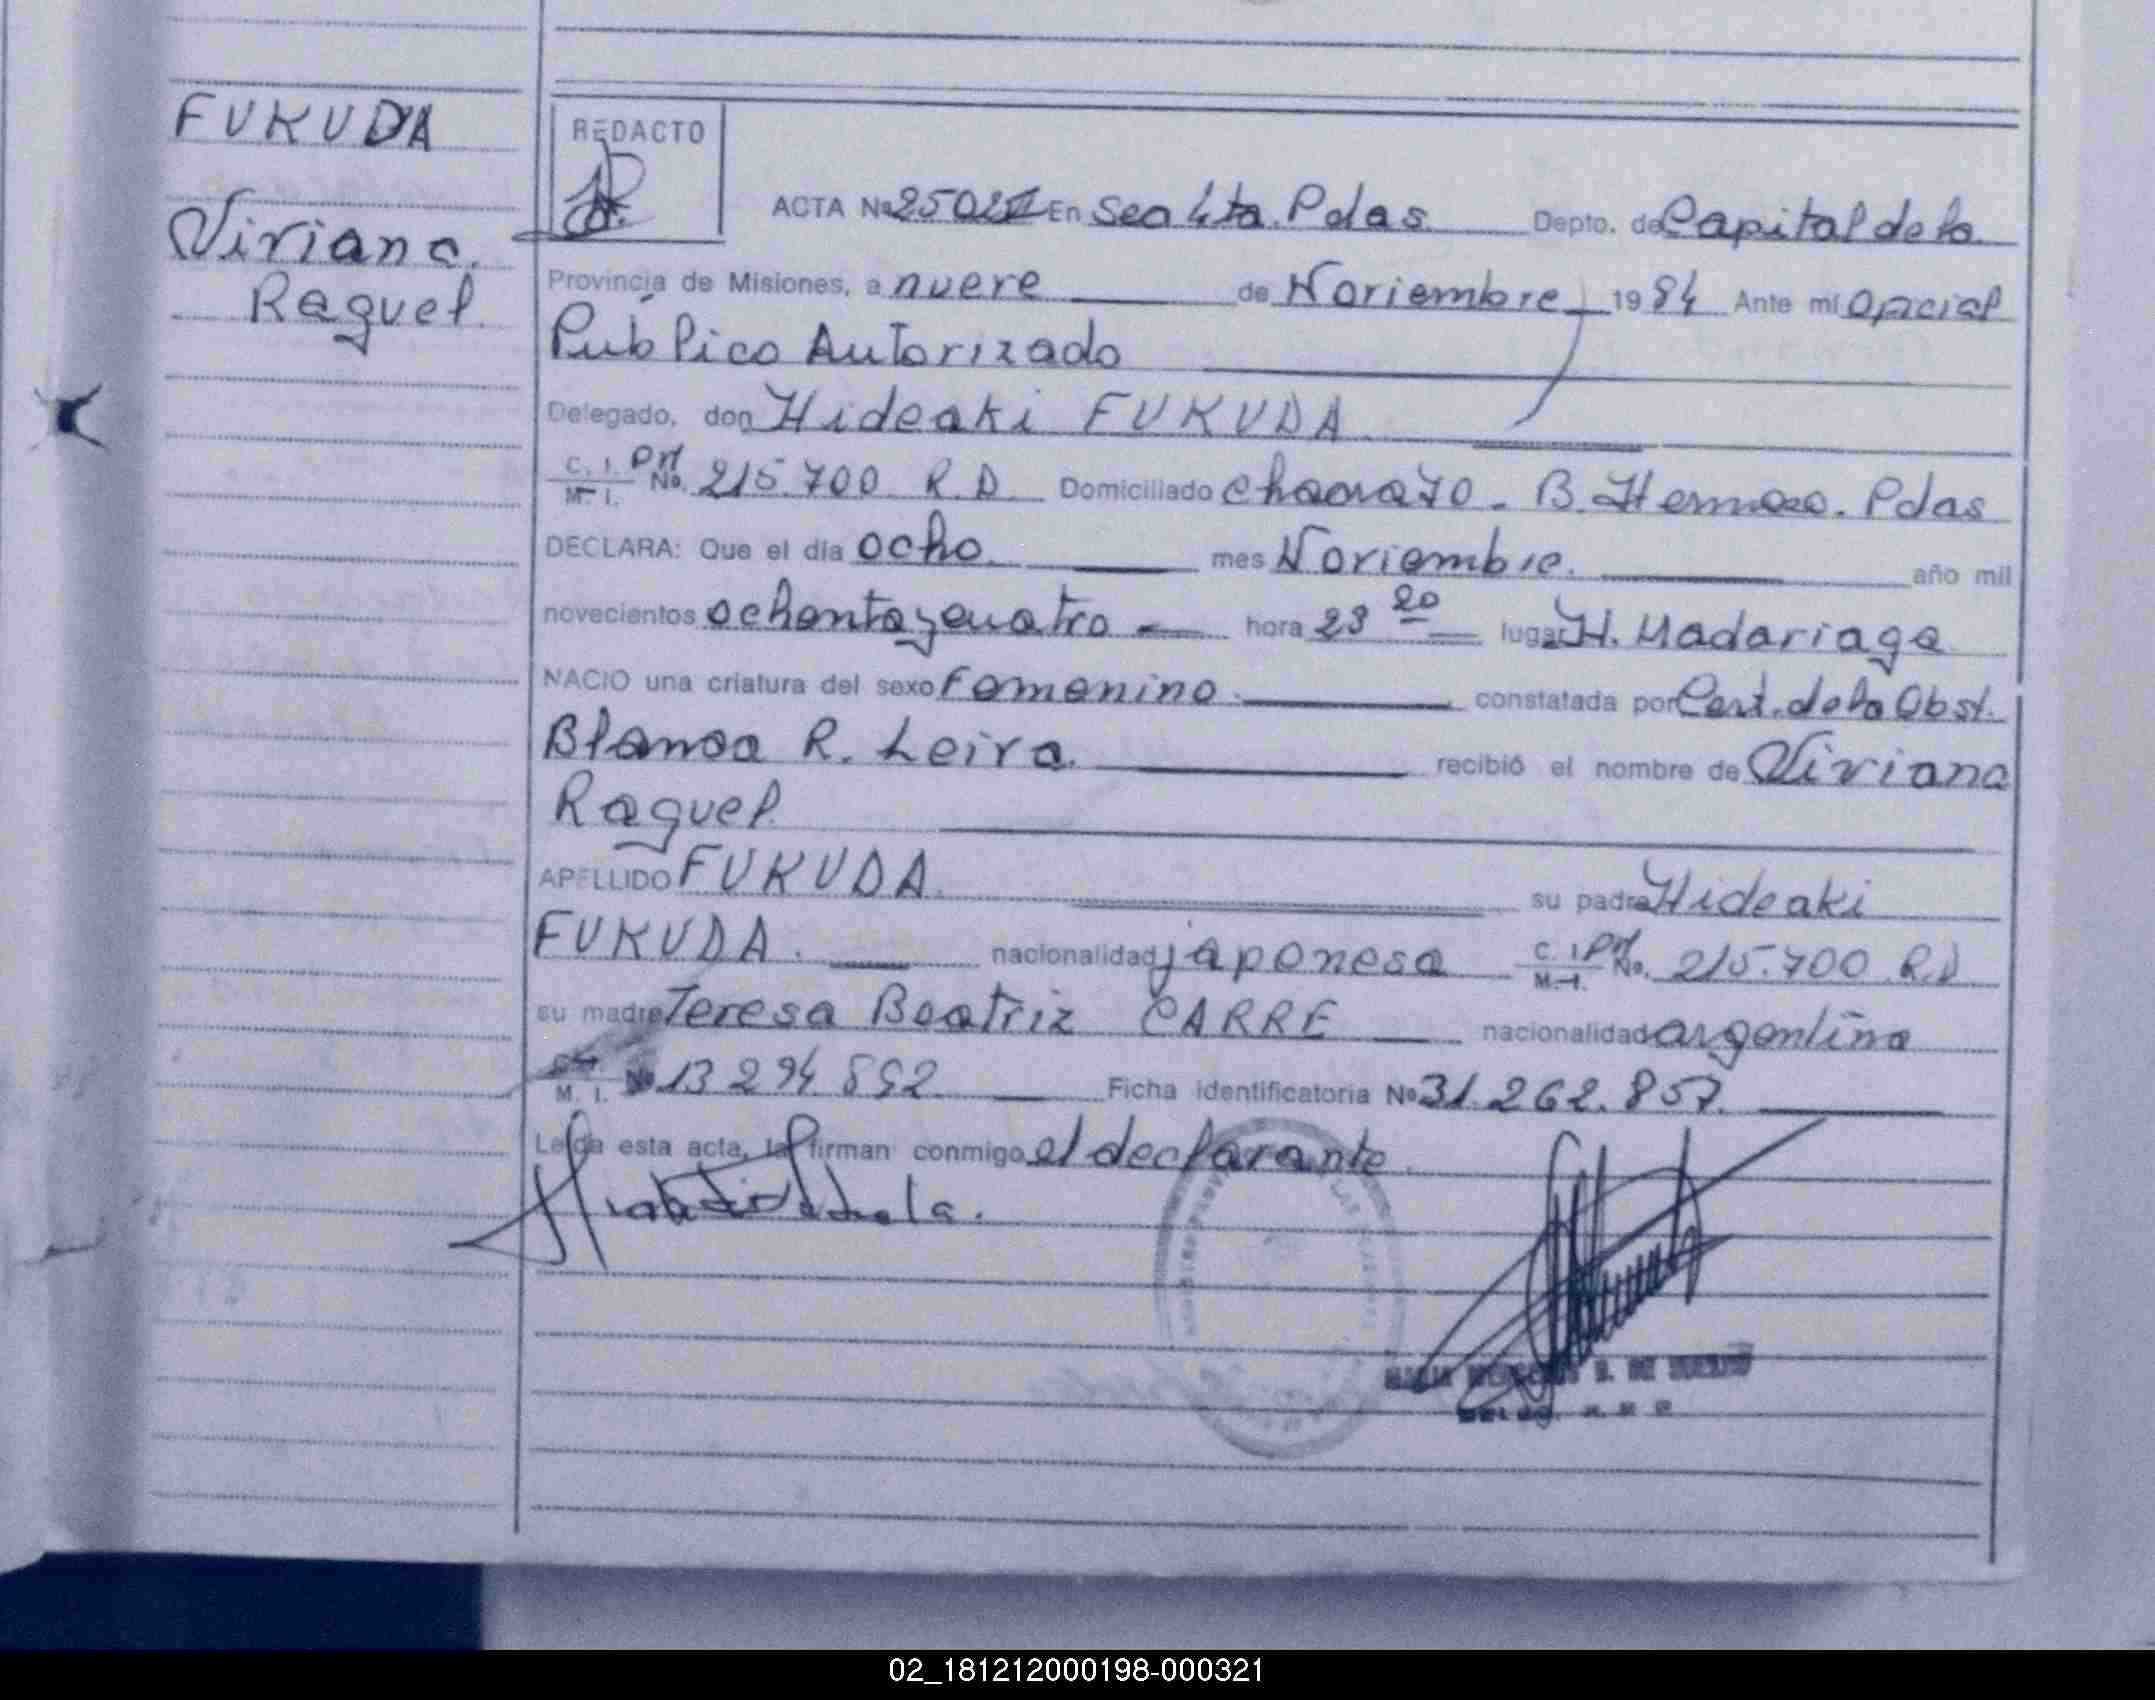 FUKUDA
Viviana
Raquel
REDACTO
ACTA Nº En Secc 4ta. Pdas Depto. de Capital de la
Provincia de Misiones, a nueve de Noviembre 1984 Ante mí Oficial
Publico Autorizado
Delegado, don Hideaki FUKUDA
C. I. M. I. No. 215.700 R.D. Domiciliado Chacra 70 - B. Hermoso. Pdas
DECLARA: Que el día ocho. mes Noviembre. año mil
novecientos ochenta y cuatro hora 23 20 lugar H. Madariaga
NACIO una criatura del sexo femenino. constatada por Cert. de la Obst.
Blanca R. Leiva. recibió el nombre de Viviana
Raquel.
APELLIDO FUKUDA. su padre Hideaki
FUKUDA. nacionalidad japonesa C. I. M. I. No. 215.700 R.D
su madre Teresa Beatriz CARRE nacionalidad argentina
M. I. 13.294.892 Ficha identificatoria Nº 31.262.857.
Leída esta acta, la firman conmigo el declarante.
02_181212000198-000321